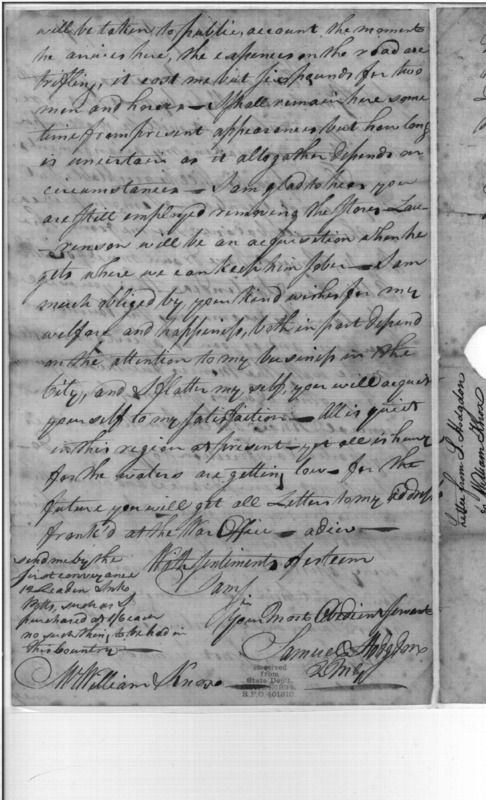 will be taken to public account the moment
he arrives here, the expences on the road are
trifling, it cost me but six pounds for two
men and horses — I shall remain here some
time from present appearances, but how long
is uncertain as it altogather depends on
circumstances — I am glad to hear you
are still employed removing the Stores — Law-
-renson will be an acquisition when he
gets where we can keep him sober — I am
much obliged by your kind wishes for my
welfare and happiness, both in part depend
on the attention to my business in the
City, and I flatter my self, you will acquit
yourself to my satisfaction — All is quiet
in this region at present — yet all is hurry
for the waters are getting low — for the
future you will get all Letters to my address
frank'd at the War Office — adieu —
With sentiments of esteem
I am
Your Most Obedient Servant
Samuel Hodgdon
2 M G
send me by the
first conveyance
12 Leaden Inks
Potts, such as I
purchased of
no such thing to be had in
this Country —
Mr William Knox
Received
from
State Dep't.
R.P.O. 401310
Letter from S. Hodgdon
to William Knox